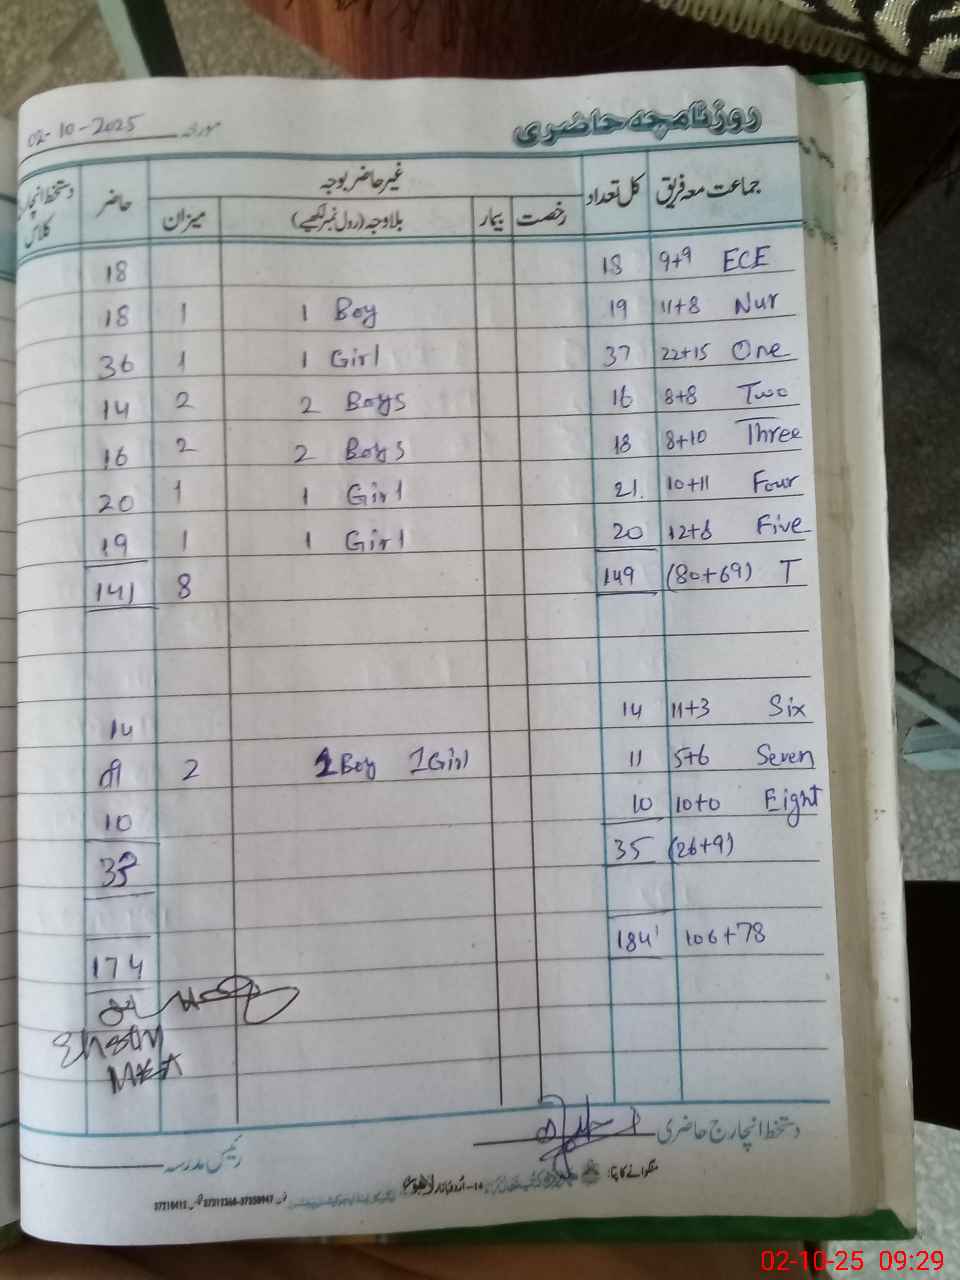 روزنامچہ حاضری
مورخہ 02-10-2025
جماعت معہ فریق کل تعداد غیر حاضر بوجہ حاضر دستخط انچارج کلاس
رخصت بیمار بلاوجہ (رول نمبر لکھیے) میزان
18 18 9+9 ECE
18 1 1 Boy 19 11+8 Nur
36 1 1 Girl 37 22+15 One
14 2 2 Boys 16 8+8 Two
16 2 2 Boys 18 8+10 Three
20 1 1 Girl 21. 10+11 Four
19 1 1 Girl 20 12+8 Five
141 8 149 (80+69) T
14 14 11+3 Six
2 1 Boy 1 Girl 11 5+6 Seven
10 10 10+0 Eight
33 35 (26+9)
184 106+78
174
دستخط انچارج حاضری
رئیس مدرسہ
منگوانے کا پتہ:
02-10-25 09:29